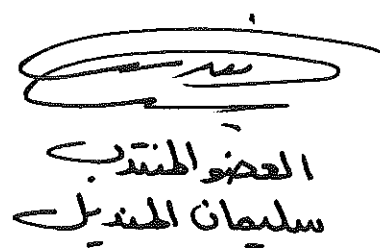 العضو المنتدب
سليمان المنديل